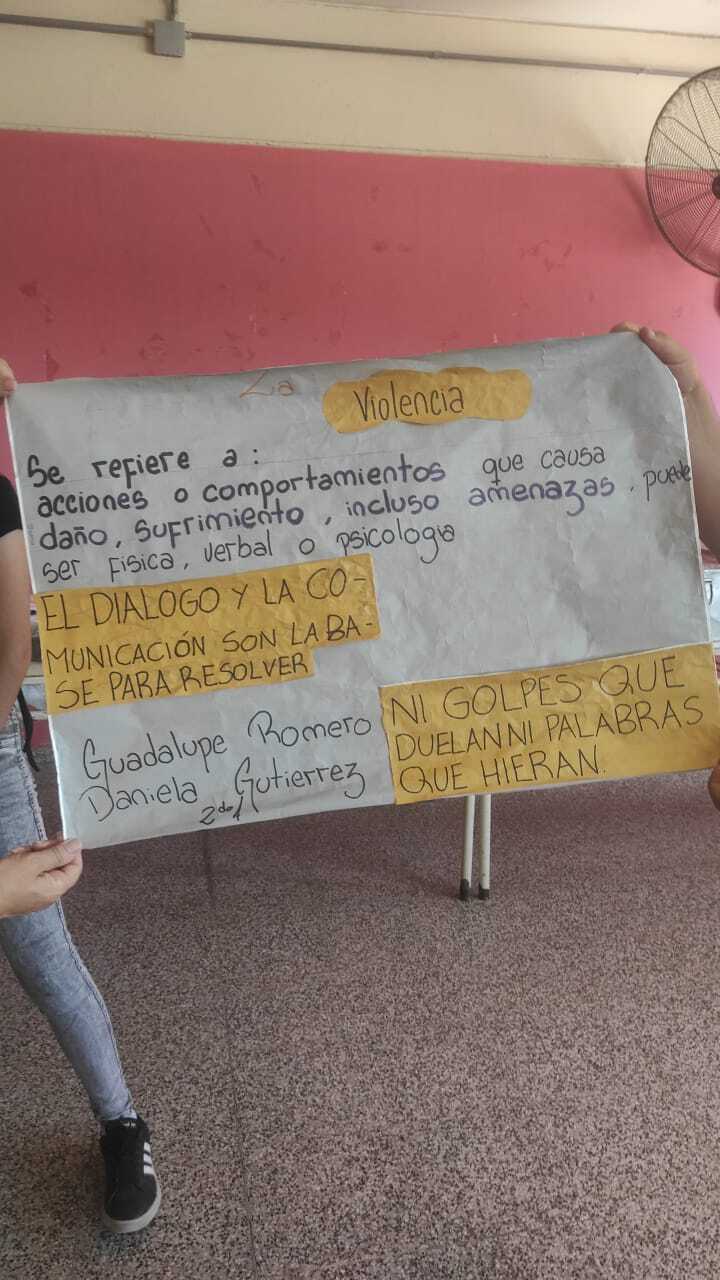 La Violencia
Se refiere a:
acciones o comportamientos que causa
daño, sufrimiento, incluso amenazas, puede
ser Física, verbal o psicologia
EL DIALOGO Y LA CO-
MUNICACIÓN SON LA BA-
SE PARA RESOLVER
NI GOLPES QUE
DUELAN NI PALABRAS
QUE HIERAN.
Guadalupe Romero
Daniela Gutierrez
2do 1